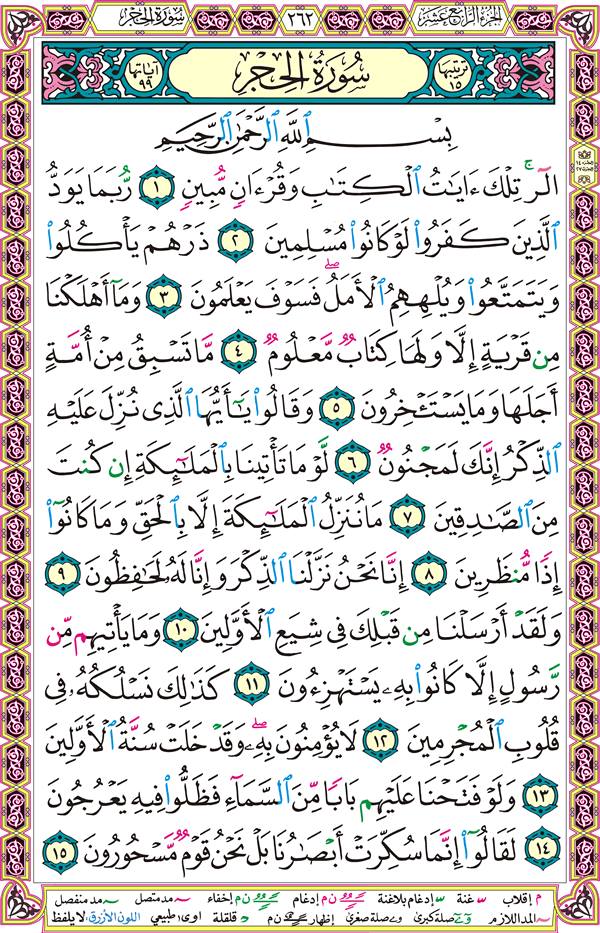 الجزء الرابع عشر
٢٦٢
سورة الحجر
ترتيبها ١٥
سُورَةُ الحِجر
آياتها ٩٩
بِسْمِ ٱللَّهِ ٱلرَّحْمَٰنِ ٱلرَّحِيمِ
الٓرۚ تِلْكَ ءَايَٰتُ ٱلْكِتَٰبِ وَقُرْءَانٖ مُّبِينٖ ١ رُّبَمَا يَوَدُّ
ٱلَّذِينَ كَفَرُوا۟ لَوْ كَانُوا۟ مُسْلِمِينَ ٢ ذَرْهُمْ يَأْكُلُوا۟
وَيَتَمَتَّعُوا۟ وَيُلْهِهِمُ ٱلْأَمَلُۖ فَسَوْفَ يَعْلَمُونَ ٣ وَمَآ أَهْلَكْنَا
مِن قَرْيَةٍ إِلَّا وَلَهَا كِتَابٞ مَّعْلُومٞ ٤ مَّا تَسْبِقُ مِنْ أُمَّةٍ
أَجَلَهَا وَمَا يَسْتَـْٔخِرُونَ ٥ وَقَالُوا۟ يَٰٓأَيُّهَا ٱلَّذِى نُزِّلَ عَلَيْهِ
ٱلذِّكْرُ إِنَّكَ لَمَجْنُونٞ ٦ لَّوْ مَا تَأْتِينَا بِٱلْمَلَٰٓئِكَةِ إِن كُنتَ
مِنَ ٱلصَّٰدِقِينَ ٧ مَا نُنَزِّلُ ٱلْمَلَٰٓئِكَةَ إِلَّا بِٱلْحَقِّ وَمَا كَانُوٓا۟
إِذٗا مُّنظَرِينَ ٨ إِنَّا نَحْنُ نَزَّلْنَا ٱلذِّكْرَ وَإِنَّا لَهُۥ لَحَٰفِظُونَ ٩
وَلَقَدْ أَرْسَلْنَا مِن قَبْلِكَ فِى شِيَعِ ٱلْأَوَّلِينَ ١٠ وَمَا يَأْتِيهِم مِّن
رَّسُولٍ إِلَّا كَانُوا۟ بِهِۦ يَسْتَهْزِءُونَ ١١ كَذَٰلِكَ نَسْلُكُهُۥ فِى
قُلُوبِ ٱلْمُجْرِمِينَ ١٢ لَا يُؤْمِنُونَ بِهِۦۖ وَقَدْ خَلَتْ سُنَّةُ ٱلْأَوَّلِينَ
١٣ وَلَوْ فَتَحْنَا عَلَيْهِم بَابٗا مِّنَ ٱلسَّمَآءِ فَظَلُّوا۟ فِيهِ يَعْرُجُونَ
١٤ لَقَالُوٓا۟ إِنَّمَا سُكِّرَتْ أَبْصَٰرُنَا بَلْ نَحْنُ قَوْمٞ مَّسْحُورُونَ ١٥
م إقلاب غنة إدغام بلاغنة ن م إدغام إخفاء مد متصل مد منفصل
المد اللازم صلة كبرى صلة صغرى إظهار ن م قلقلة طبيعي اللون الأزرق: لا يلفظ